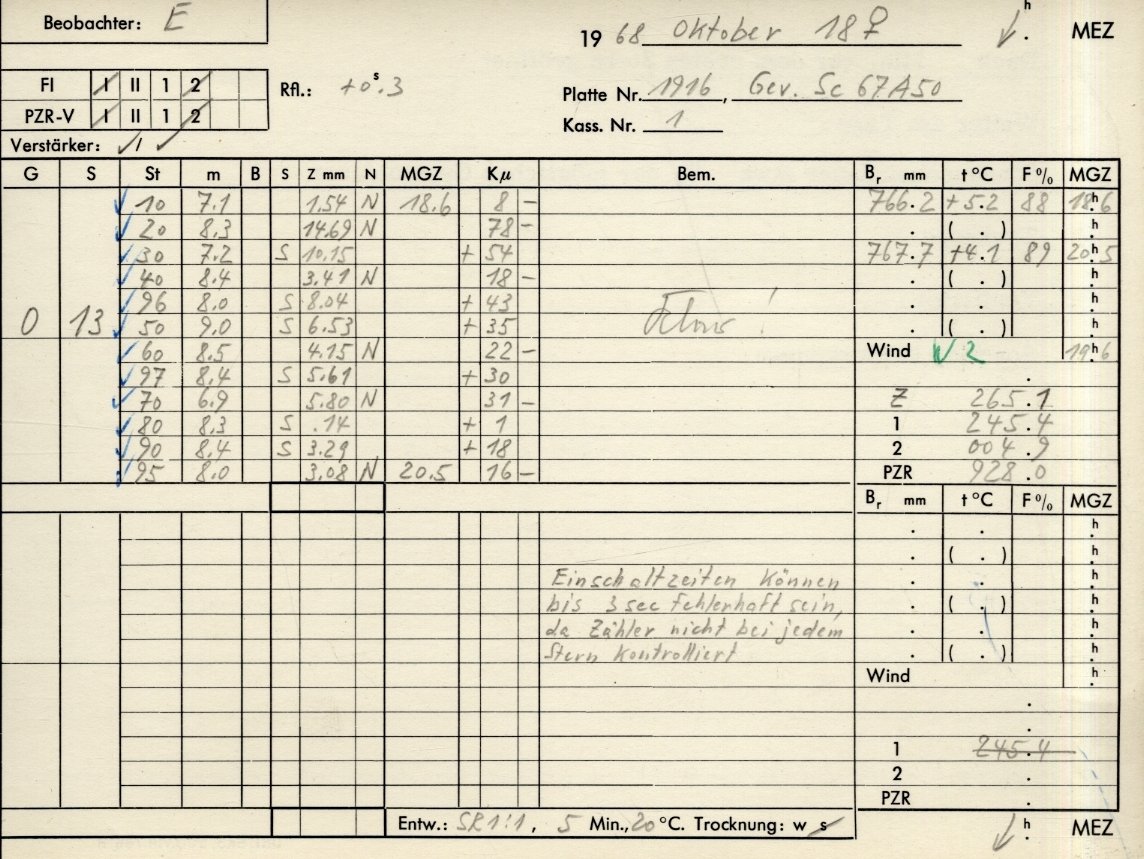 Beobachter: E
19 68 Oktober 18 ♀ h . MEZ
FI I II 1 2 Rfl.: +0ˢ.3
Platte Nr. 1916, Gev. Sc 67A50
PZR-V I II 1 2
Kass. Nr. 1
Verstärker:
G S St m B S Z mm N MGZ Kμ Bem. Br mm t °C F % MGZ
10 7.1 1.54 N 18.6 8 – 766.2 +5.2 88 18h.6
20 8.3 14.69 N 78 – . ( . ) h .
30 7.2 S 10.15 + 54 767.7 +4.1 89 20h.5
40 8.4 3.41 N 18 – . ( . ) h .
96 8.0 S 8.04 + 43 . . h .
0 13 50 9.0 S 6.53 + 35 . ( . ) h .
60 8.5 4.15 N 22 – Wind 2 19h.6
97 8.4 S 5.61 + 30 .
70 6.9 5.80 N 31 – Z 265.1
80 8.3 S .14 + 1 1 245.4
90 8.4 S 3.29 + 18 2 004.9
95 8.0 3.08 N 20.5 16 – PZR 928.0
Br mm t °C F % MGZ
. . h .
. ( . ) h .
Einschaltzeiten können . . h .
bis 3 sec fehlerhaft sein, . ( . ) h .
da Zähler nicht bei jedem . . h .
Stern kontrolliert . ( . ) h .
Wind h .
.
.
1 245.4
2 .
PZR .
Entw.: SR 1:1, 5 Min., 20 °C. Trocknung: w s h . MEZ